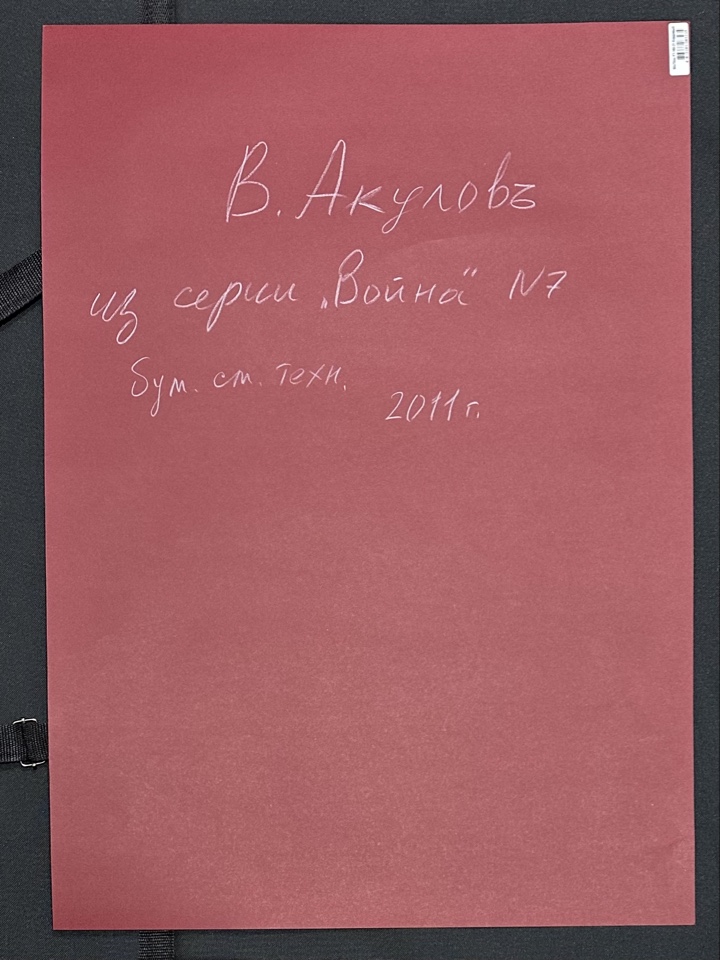 В. Акуловъ
из серии „Война“ N7
бум. см. техн.
2011 г.